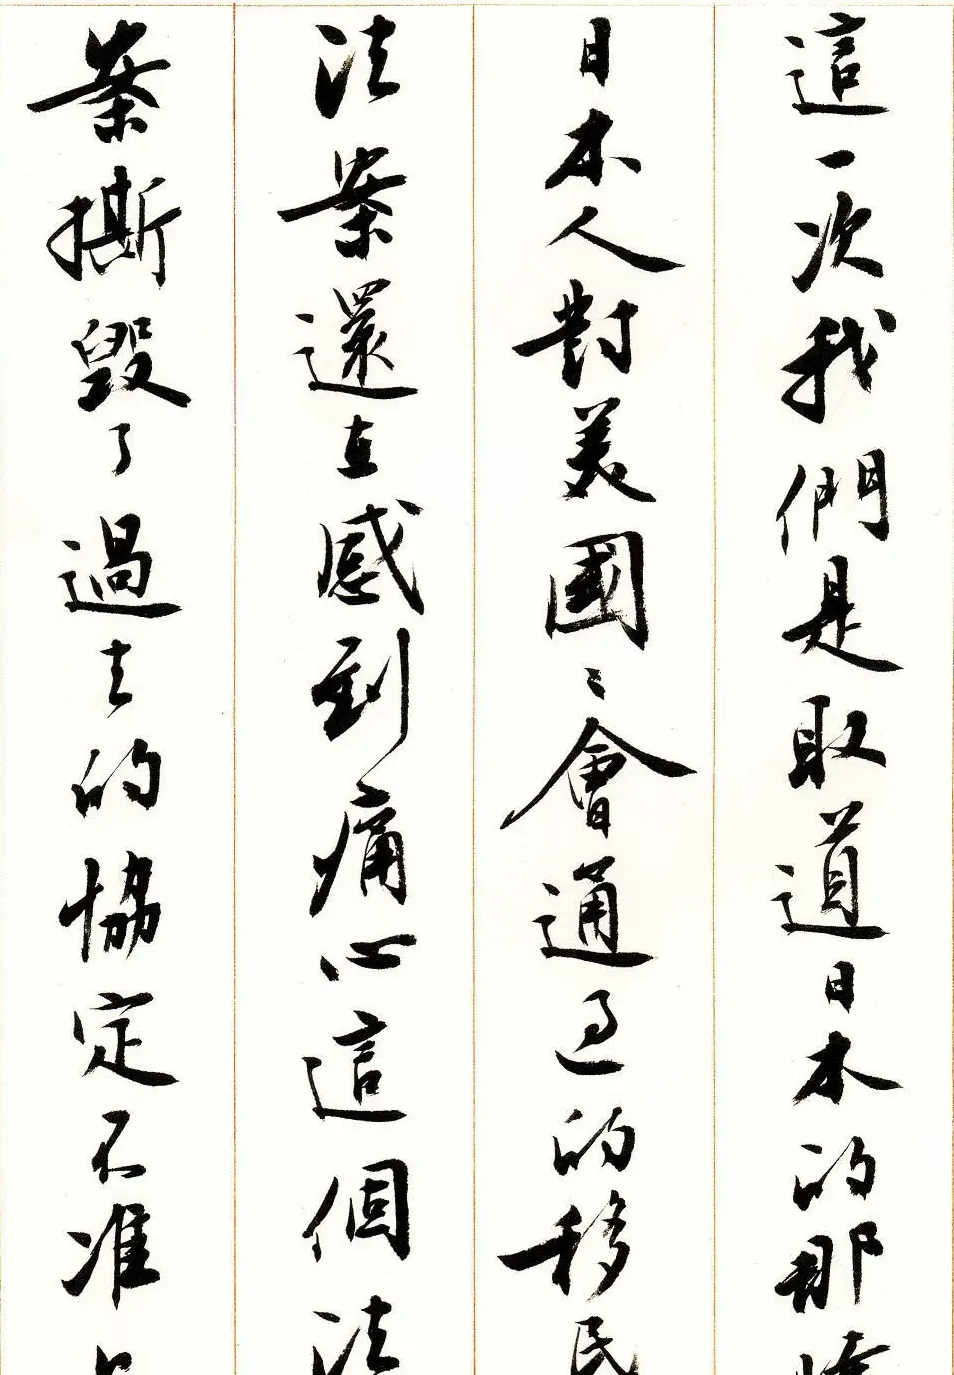 這一次我們是取道日本的那時
日本人對美國〻會通过的移民
法案還在感到痛心這個法
案撕毀了過去的協定不准